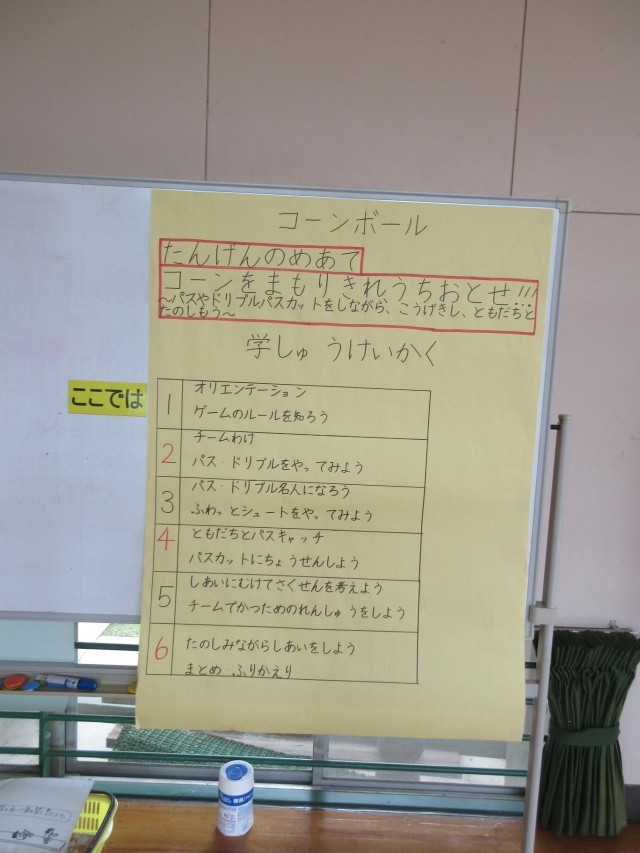 コーンボール
たんげんのめあて
コーンをまもりきれうちおとせ!!!
～パスやドリブルパスカットをしながら、こうげきし、ともだちと
たのしもう～
学しゅうけいかく
1
オリエンテーション
ゲームのルールを知ろう
2
チームわけ
パス・ドリブルをやってみよう
3
パス・ドリブル名人になろう
ふわっとシュートをやってみよう
4
ともだちとパスキャッチ
パスカットにちょうせんしよう
5
しあいにむけてさくせんを考えよう
チームでかつためのれんしゅうをしよう
6
たのしみながらしあいをしよう
まとめ・ふりかえり
ここでは